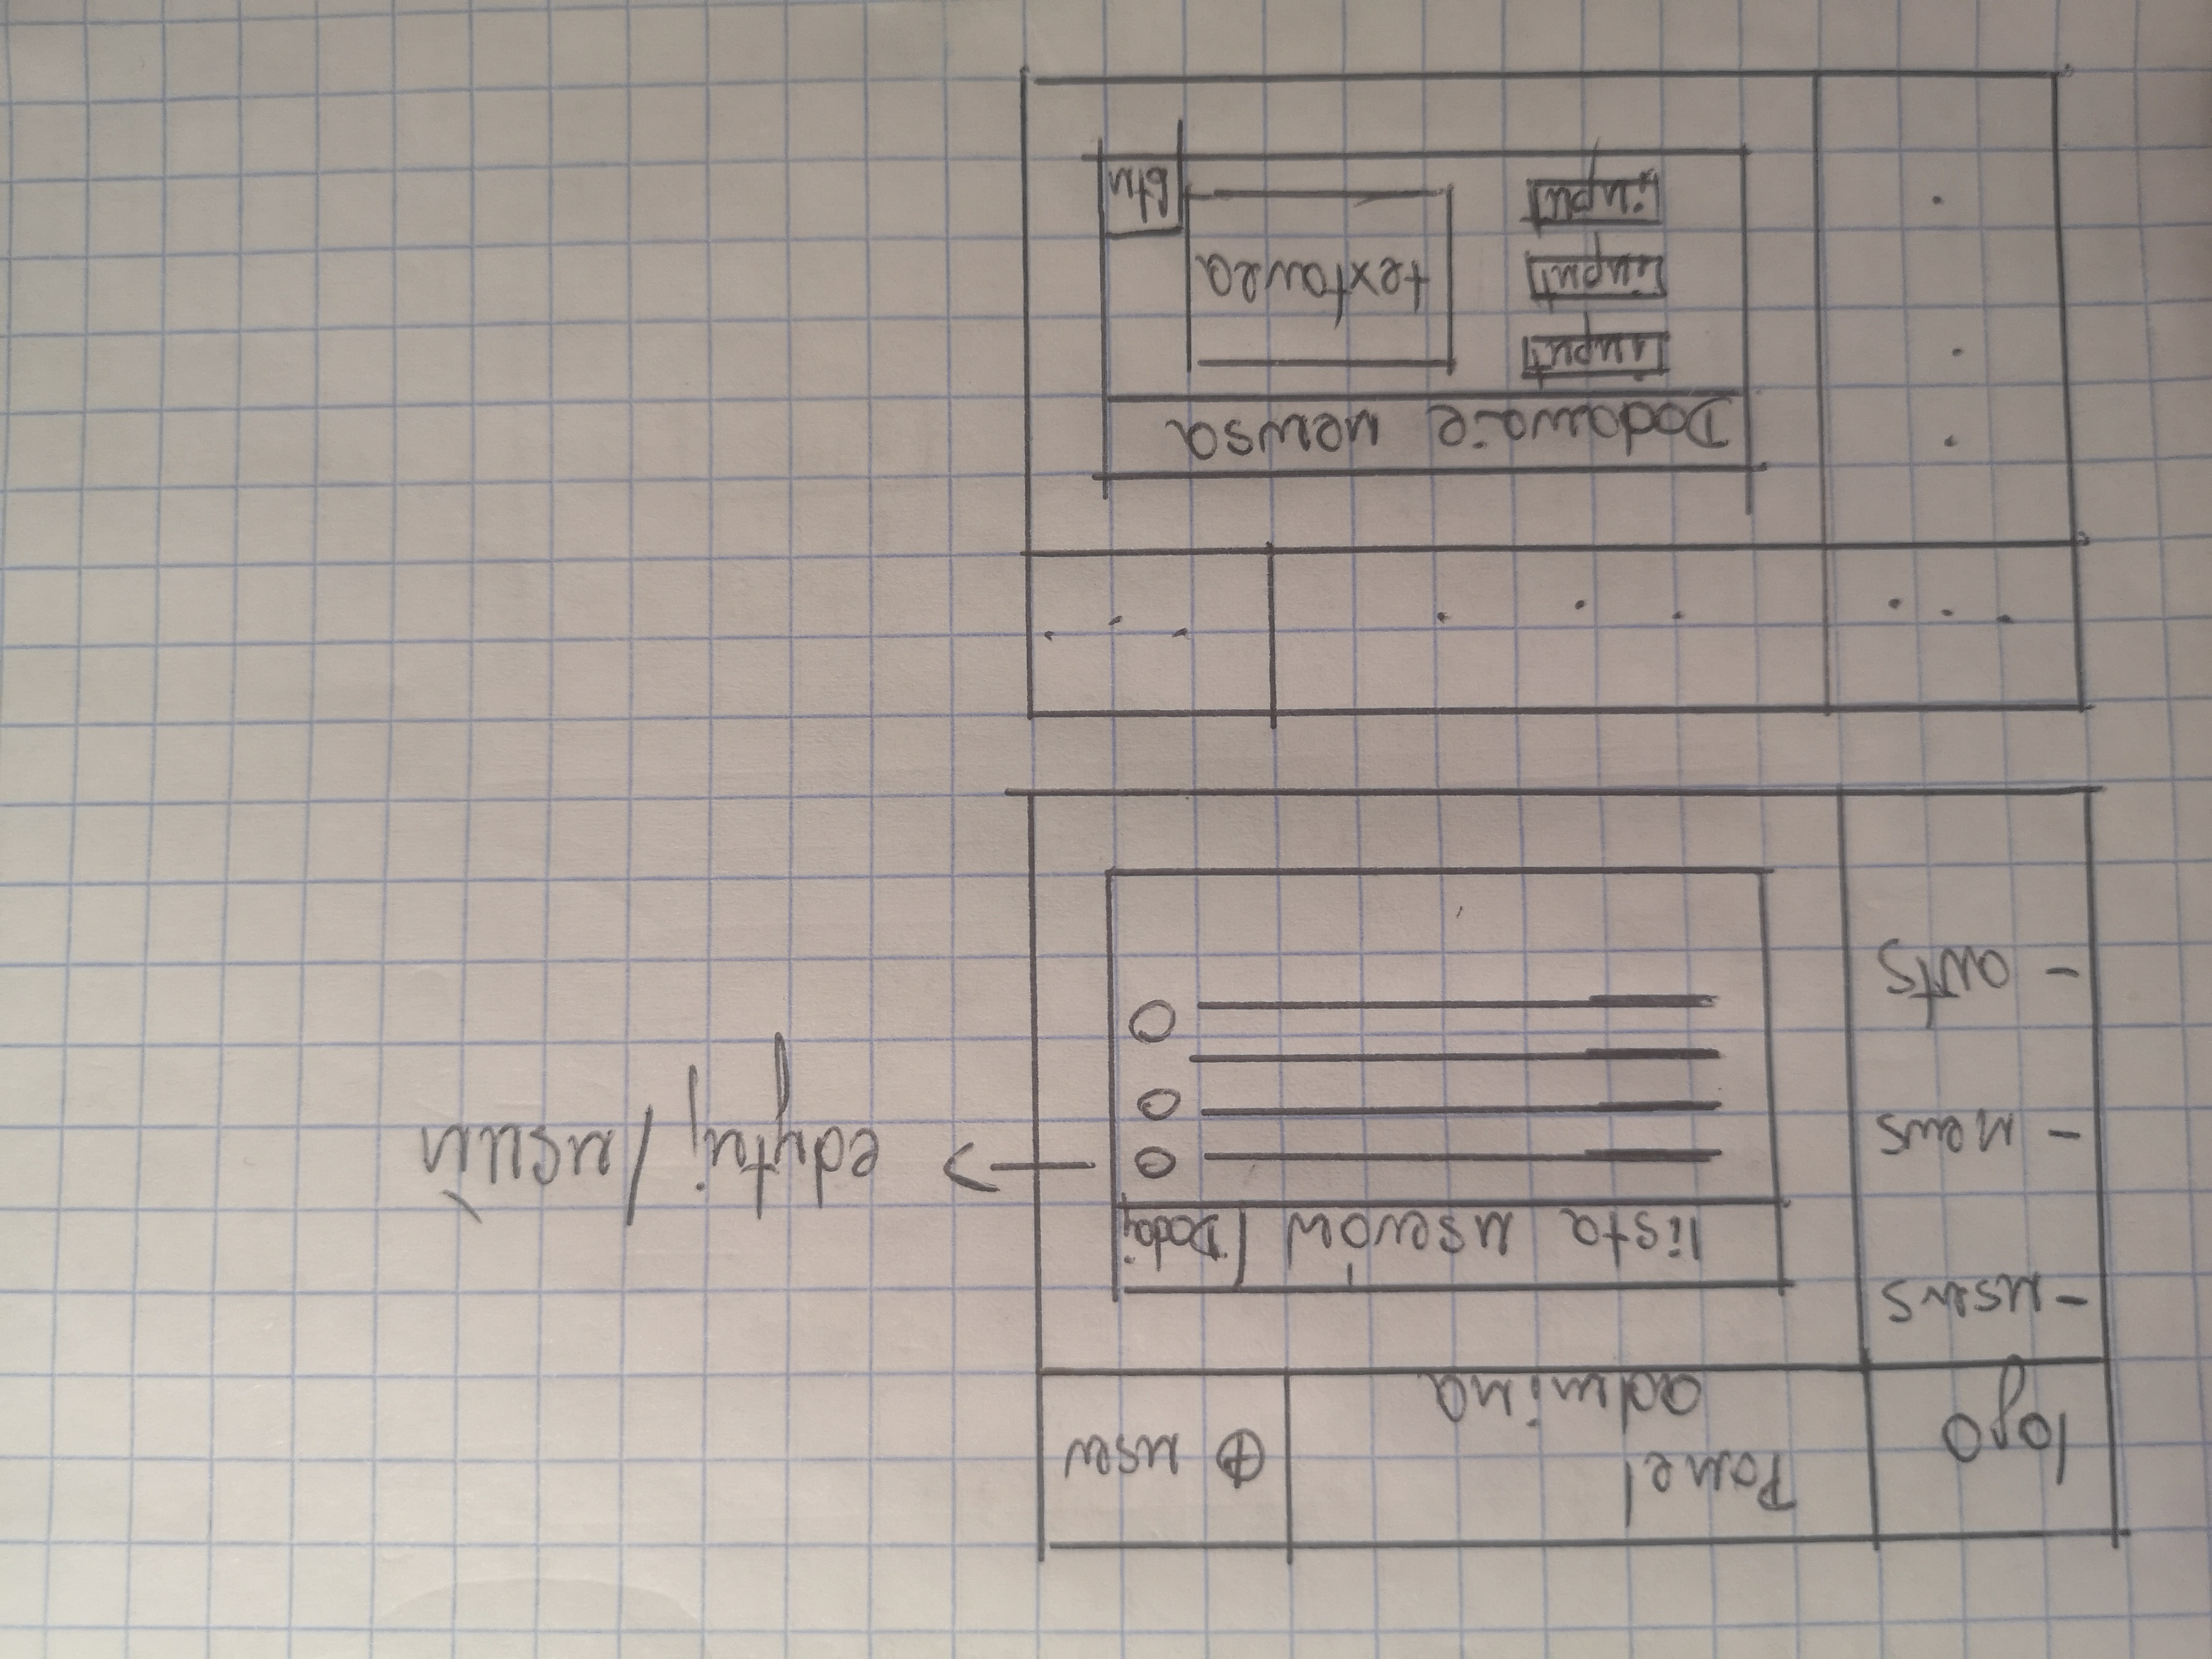 logo
Panel
admina
⊕ user
- users
- news
- arts
lista userów / Dodaj
→ edytuj / usuń
Dodawaie newsa
input
input
input
textarea
btn